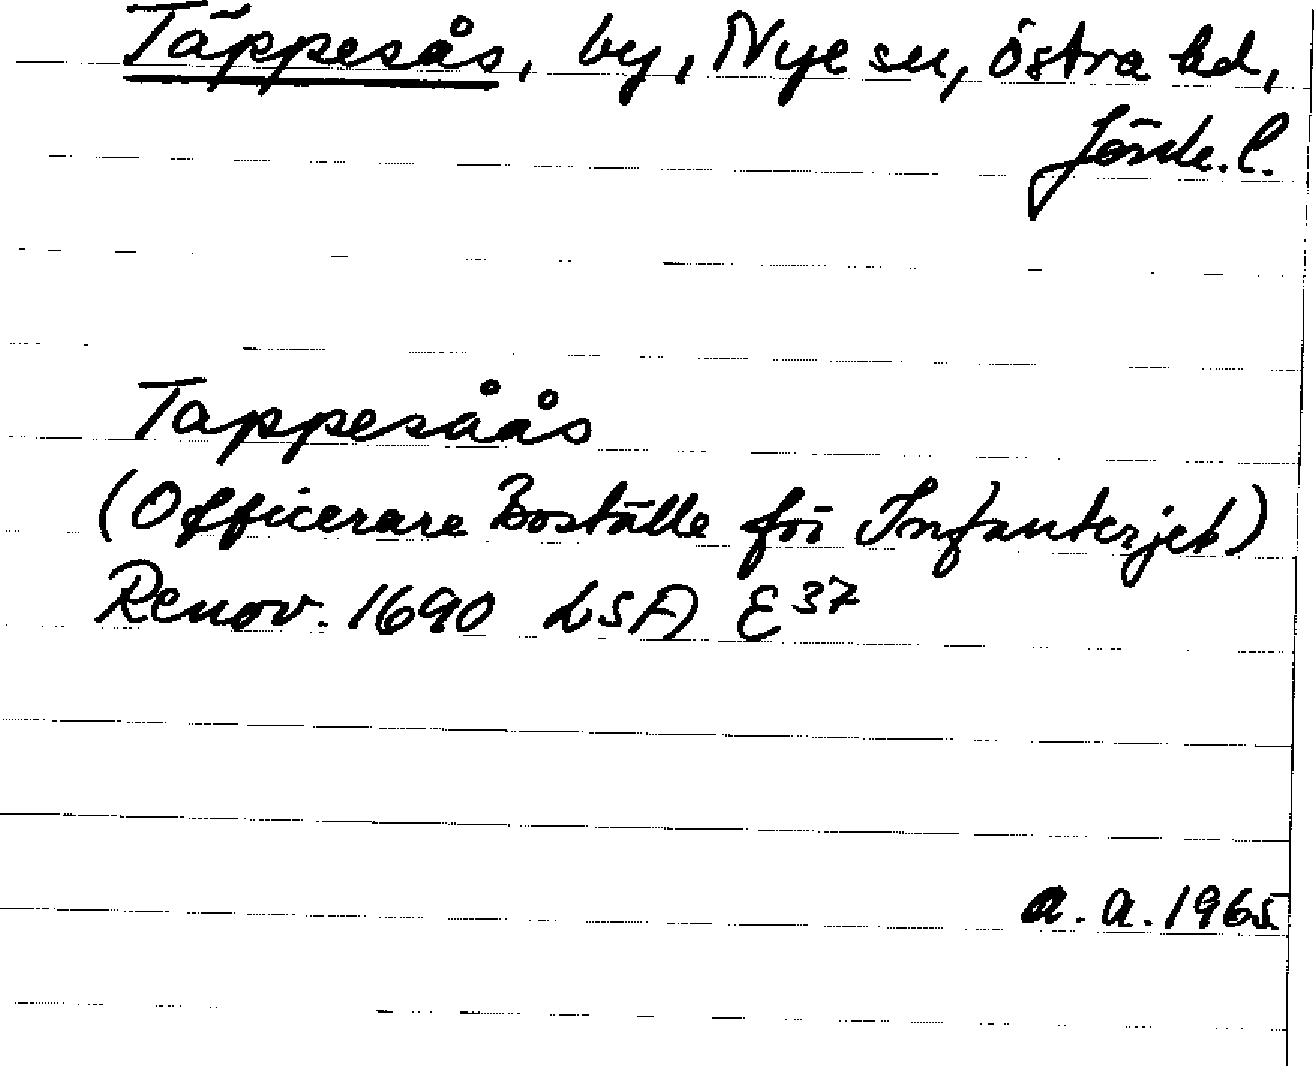 Täppesås, by, Nye sn, Östra hd,
Jönk. l.
Tappesåås
(Officerare Boställe för Infanterjet)
Renov. 1690 LSA E37
a. a. 1965